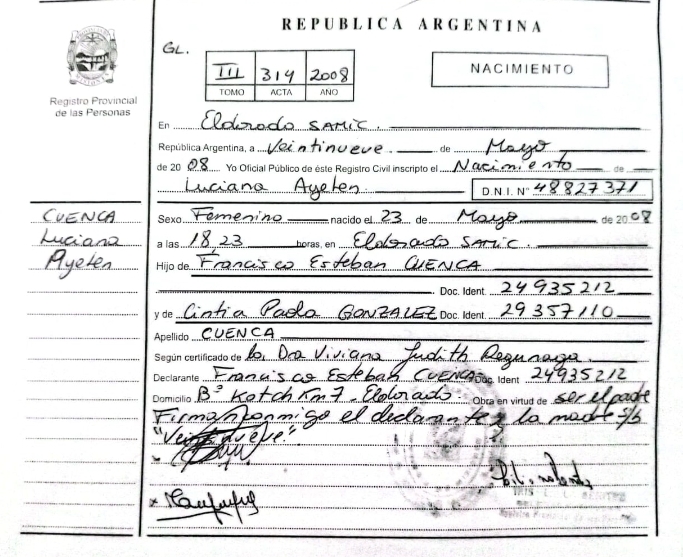 REPUBLICA ARGENTINA
GL.
III 314 2008
TOMO ACTA AÑO
NACIMIENTO
Registro Provincial
de las Personas
En Eldorado SAMIC.
República Argentina, a Veintinueve de Mayo
de 20 08 Yo Oficial Público de éste Registro Civil inscripto el Nacimiento de
Luciana Ayelen D.N.I. N° 48827371
CUENCA
Luciana
Ayelen
Sexo Femenino nacido el 23 de Mayo de 2008
a las 18,23 horas, en Eldorado SAMIC.
Hijo de Francisco Esteban CUENCA
Doc. Ident. 24935212
y de Cintia Paola GONZALEZ Doc. Ident. 29357110
Apellido CUENCA
Según certificado de la Dra Viviana Judith
Declarante Francisco Esteban CUENCA Doc. Ident 24935212
Domicilio B° Katch Km 7 - Eldorado. Obra en virtud de ser el padre
Firman conmigo el declarante y la madre s/b
"Veintinueve".